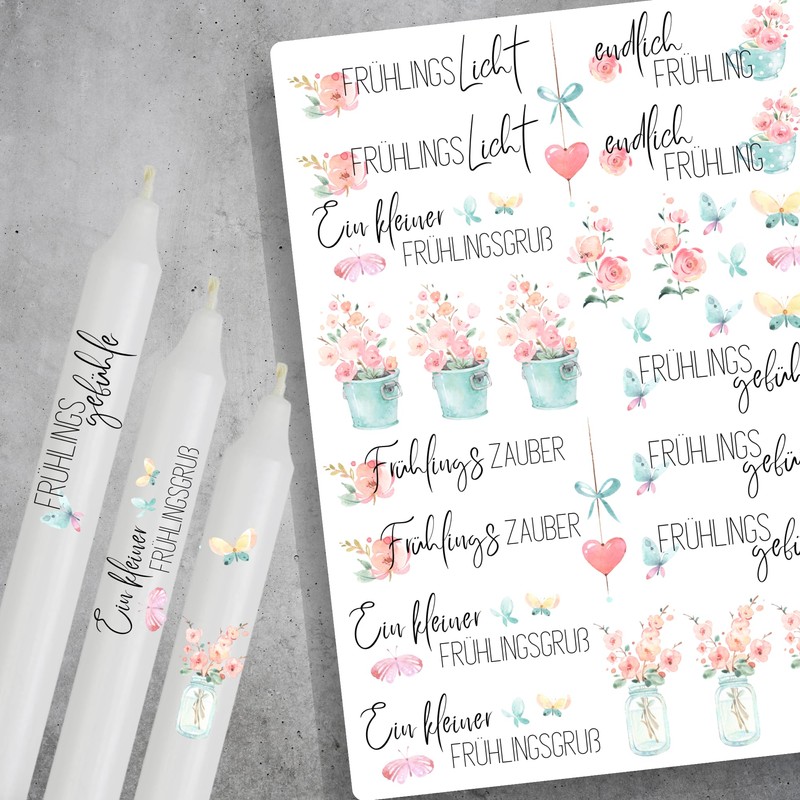 FRÜHLINGS gefühle
Ein kleiner
FRÜHLINGSGRUß
FRÜHLINGS Licht
FRÜHLINGS Licht
Ein kleiner
FRÜHLINGSGRUß
Frühlings ZAUBER
Frühlings ZAUBER
Ein kleiner
FRÜHLINGSGRUß
Ein kleiner
FRÜHLINGSGRUß
endlich
FRÜHLING
endlich
FRÜHLING
FRÜHLINGS
gefüh
FRÜHLINGS
gefü
FRÜHLINGS
gefü